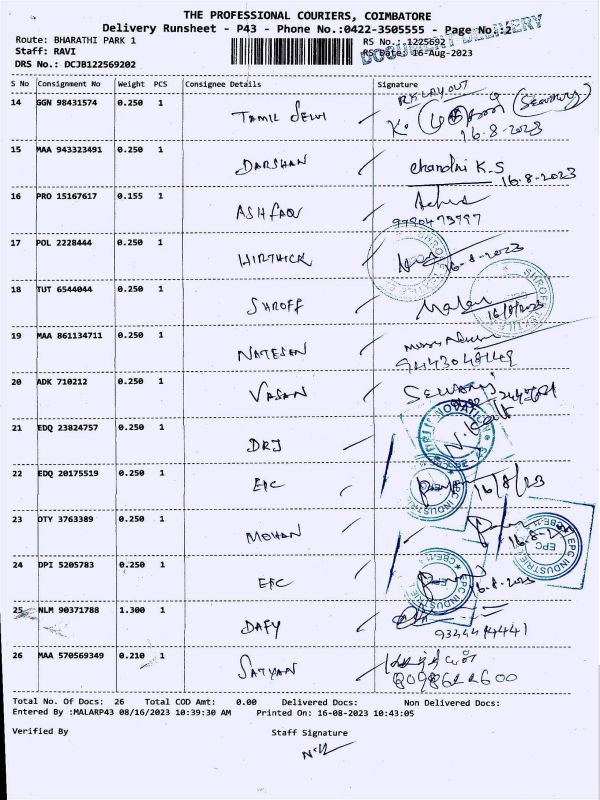 THE PROFESSIONAL COURIERS, COIMBATORE
Delivery Runsheet - P43 - Phone No.:0422-3505555 - Page No.:2
Route: BHARATHI PARK 1 RS No.: 1225692
Staff: RAVI RS Date: 16-Aug-2023
DOCUMENT DELIVERY
DRS No.: DCJB122569202
S No Consignment No Weight PCS Consignee Details Signature
RK LAYOUT
14 GGN 98431574 0.250 1 TAMIL SELVI K.
16.8-2023
15 MAA 943323491 0.250 1 DARSHAN Chandni K.S
16-8-2023
16 PRO 15167617 0.155 1 ASHFAQ
17 POL 2228444 0.250 1 HIRTHICK 16-8-2023
18 TUT 6544044 0.250 1 SHROFF
16/8/2023
19 MAA 861134711 0.250 1 NATESAN
20 ADK 710212 0.250 1 VASAN
21 EDQ 23824757 0.250 1 DRJ
22 EDQ 20175519 0.250 1 EPC 16/8/23
EPC INDUSTRIE
23 OTY 3763389 0.250 1 MOHAN
EPC INDUSTRIE
CBE-11
EPC
24 DPI 5205783 0.250 1 EPC 16-8-2023
EPC INDUSTRIE
CBE-11
EPC
25 NLM 90371788 1.300 1 DAFY
9344414441
26 MAA 570569349 0.210 1 SATYAN
Total No. Of Docs: 26 Total COD Amt: 0.00 Delivered Docs: Non Delivered Docs:
Entered By :MALARP43 08/16/2023 10:39:30 AM Printed On: 16-08-2023 10:43:05
Verified By Staff Signature